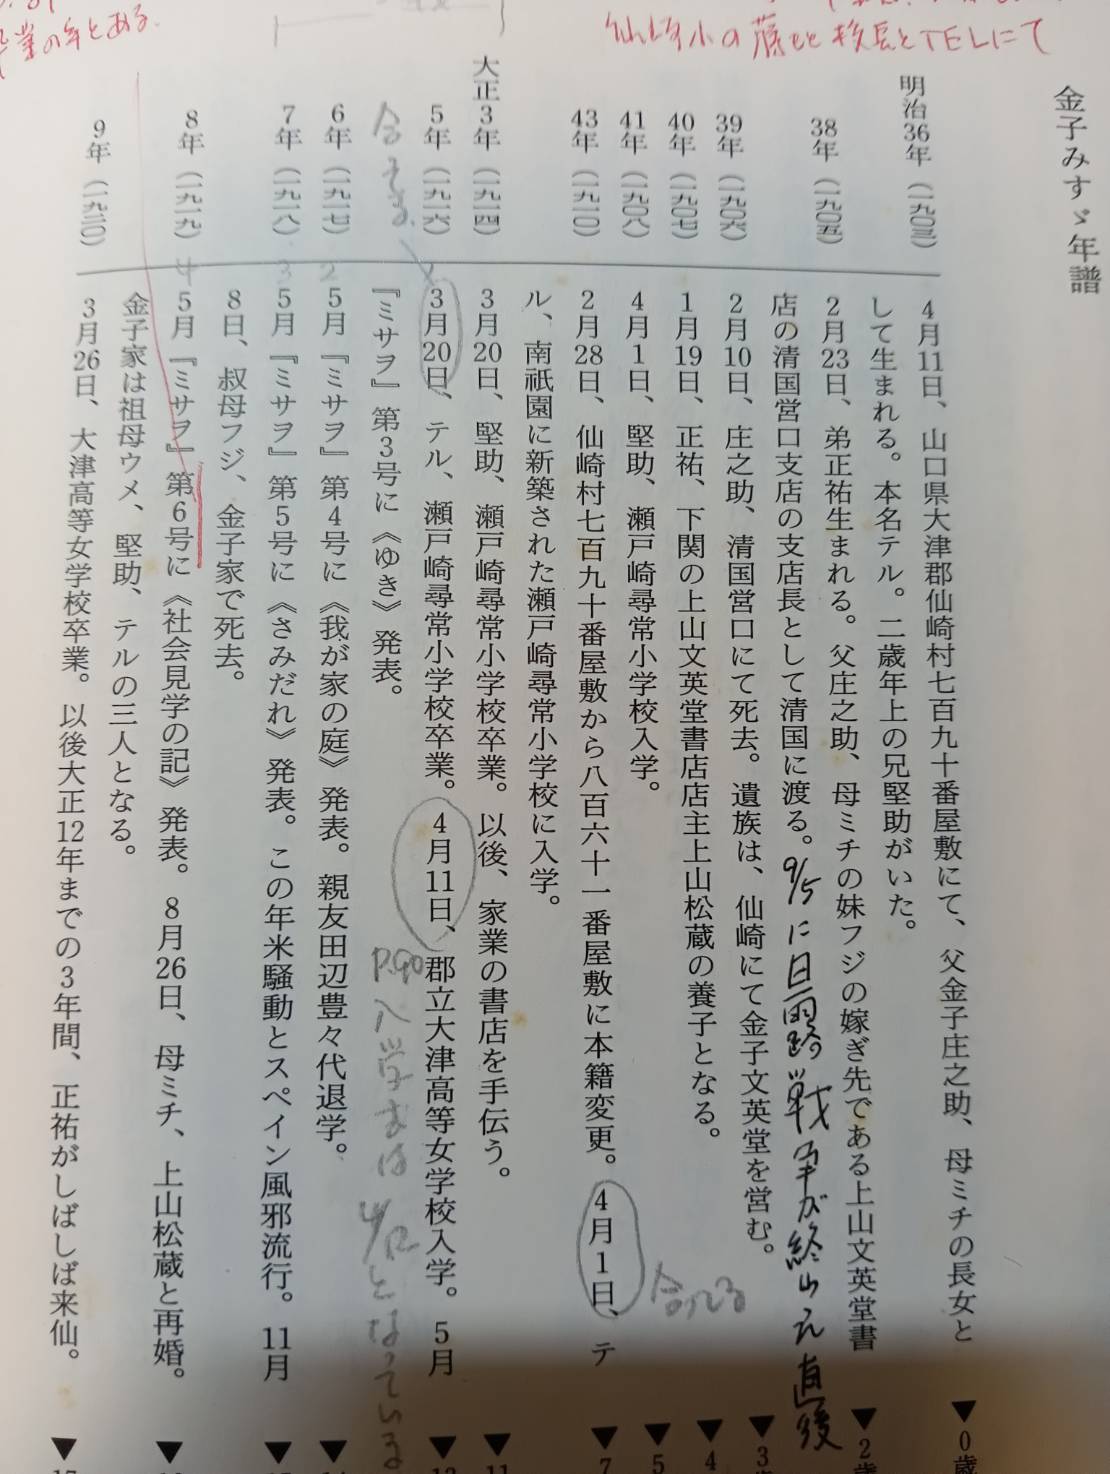 卒業の年とある。
仙崎小の藤村校長とTELにて
金子みすゞ年譜
明治36年（一九〇三）
4月11日、山口県大津郡仙崎村七百九十番屋敷にて、父金子庄之助、母ミチの長女と
して生まれる。本名テル。二歳年上の兄堅助がいた。
▼0歳
38年（一九〇五）
2月23日、弟正祐生まれる。父庄之助、母ミチの妹フジの嫁ぎ先である上山文英堂書
店の清国営口支店の支店長として清国に渡る。
9/5に日露戦争が終りえ直後
▼2歳
39年（一九〇六）
2月10日、庄之助、清国営口にて死去。遺族は、仙崎にて金子文英堂を営む。
▼3歳
40年（一九〇七）
1月19日、正祐、下関の上山文英堂書店店主上山松蔵の養子となる。
▼4
41年（一九〇八）
4月1日、堅助、瀬戸崎尋常小学校入学。
▼5
43年（一九一〇）
2月28日、仙崎村七百九十番屋敷から八百六十一番屋敷に本籍変更。4月1日、テ
ル、南祇園に新築された瀬戸崎尋常小学校に入学。
合ってる
▼7
大正3年（一九一四）
3月20日、堅助、瀬戸崎尋常小学校卒業。以後、家業の書店を手伝う。
▼11
5年（一九一六）
3月20日、テル、瀬戸崎尋常小学校卒業。4月11日、郡立大津高等女学校入学。5月
『ミサヲ』第3号に《ゆき》発表。
P.90入学式は4/12となっている
▼13
6年（一九一七）
2
5月『ミサヲ』第4号に《我が家の庭》発表。親友田辺豊々代退学。
▼14
7年（一九一八）
3
5月『ミサヲ』第5号に《さみだれ》発表。この年米騒動とスペイン風邪流行。11月
8日、叔母フジ、金子家で死去。
▼15
8年（一九一九）
4
5月『ミサヲ』第6号に《社会見学の記》発表。8月26日、母ミチ、上山松蔵と再婚。
金子家は祖母ウメ、堅助、テルの三人となる。
▼16
9年（一九二〇）
3月26日、大津高等女学校卒業。以後大正12年までの3年間、正祐がしばしば来仙。
▼17